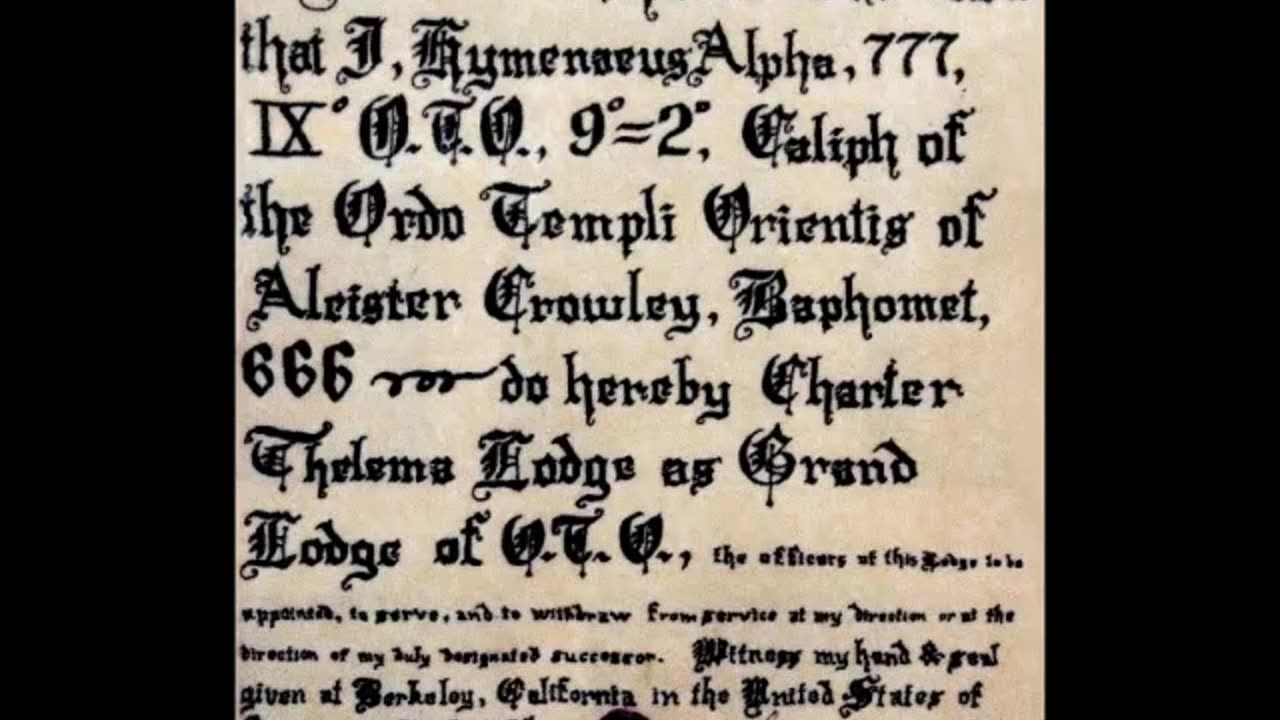 that I, Hymenaeus Alpha, 777,
IX° O.T.O., 9°=2°, Caliph of
the Ordo Templi Orientis of
Aleister Crowley, Baphomet,
666 do hereby Charter
Thelema Lodge as Grand
Lodge of O.T.O., the officers of this Lodge to be
appointed, to serve, and to withdraw from service at my direction or at the
direction of my duly designated successor. Witness my hand & seal
given at Berkeley, California in the United States of